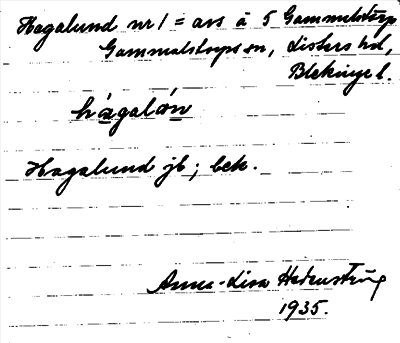 Hagalund nr 1 = avs å 5 Gammelstorp
Gammalstorps sn, Listers hd,
Blekinge l.
hágalón
Hagalund jb; bek.
Anna-Lisa Hedenstrüg
1935.